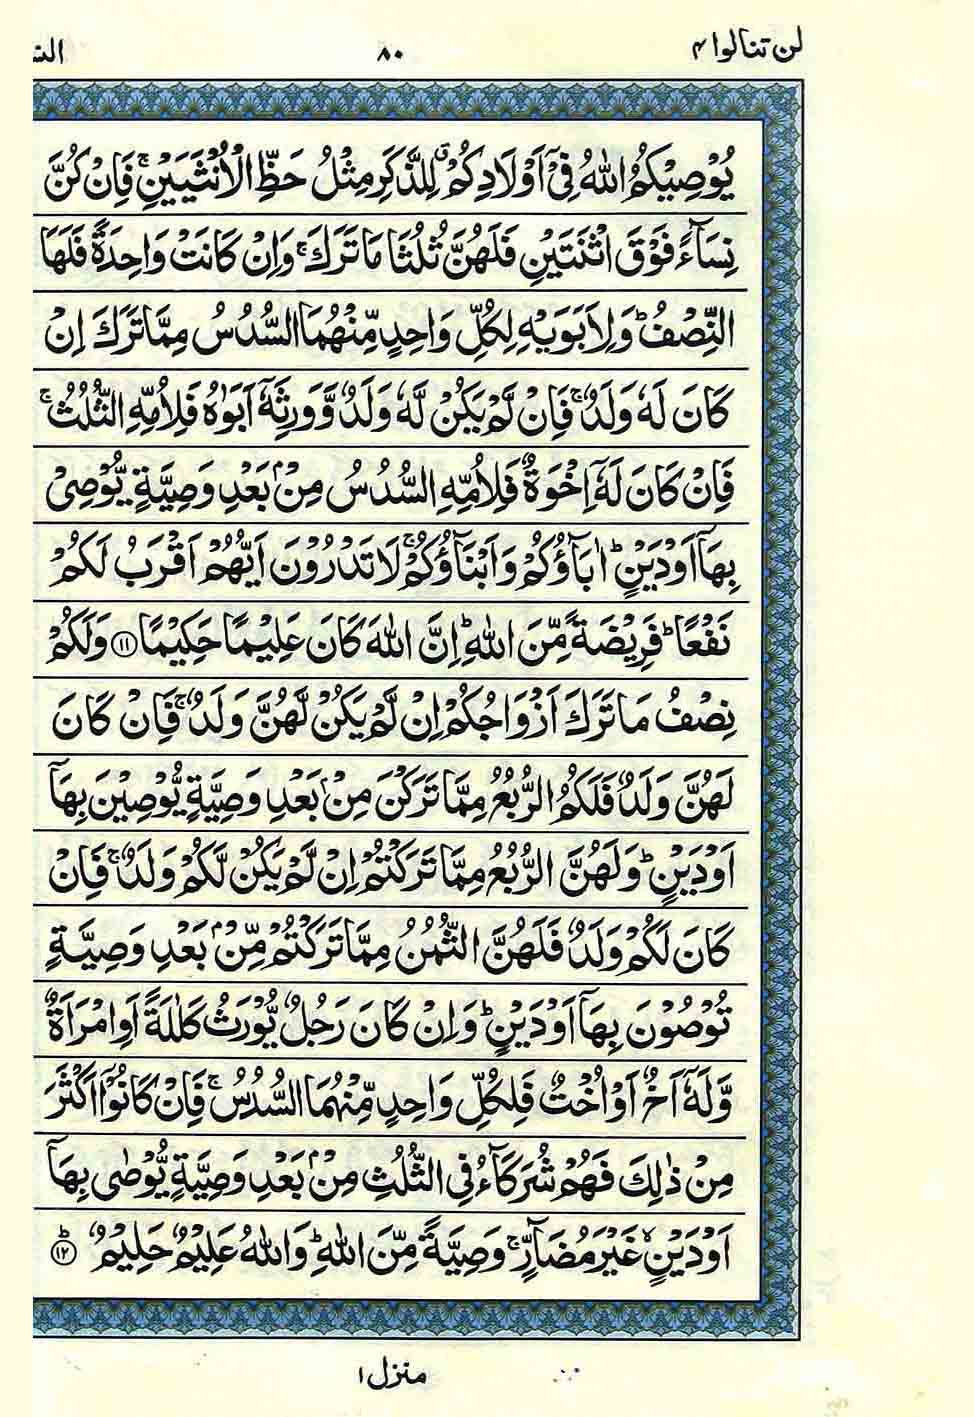 لن تنالوا ۴
۸۰
يُوۡصِيۡكُمُ اللّٰهُ فِىۡۤ اَوۡلَادِكُمۡ‌ۚ لِلذَّكَرِ مِثۡلُ حَظِّ الۡاُنۡثَيَيۡنِ‌ۚ فَاِنۡ كُنَّ
نِسَآءً فَوۡقَ اثۡنَتَيۡنِ فَلَهُنَّ ثُلُثَا مَا تَرَكَ‌ۚ وَاِنۡ كَانَتۡ وَاحِدَةً فَلَهَا
النِّصۡفُ‌ؕ وَلِاَبَوَيۡهِ لِكُلِّ وَاحِدٍ مِّنۡهُمَا السُّدُسُ مِمَّا تَرَكَ اِنۡ
كَانَ لَهٗ وَلَدٌ‌ۚ فَاِنۡ لَّمۡ يَكُنۡ لَّهٗ وَلَدٌ وَّوَرِثَهٗۤ اَبَوٰهُ فَلِاُمِّهِ الثُّلُثُ‌ۚ
فَاِنۡ كَانَ لَهٗۤ اِخۡوَةٌ فَلِاُمِّهِ السُّدُسُ مِنۡۢ بَعۡدِ وَصِيَّةٍ يُّوۡصِىۡ
بِهَاۤ اَوۡ دَيۡنٍ‌ؕ اٰبَآؤُكُمۡ وَاَبۡنَآؤُكُمۡ‌ۚ لَا تَدۡرُوۡنَ اَيُّهُمۡ اَقۡرَبُ لَكُمۡ
نَفۡعًا‌ؕ فَرِيۡضَةً مِّنَ اللّٰهِ‌ؕ اِنَّ اللّٰهَ كَانَ عَلِيۡمًا حَكِيۡمًا ۱۱ وَلَكُمۡ
نِصۡفُ مَا تَرَكَ اَزۡوَاجُكُمۡ اِنۡ لَّمۡ يَكُنۡ لَّهُنَّ وَلَدٌ‌ۚ فَاِنۡ كَانَ
لَهُنَّ وَلَدٌ فَلَكُمُ الرُّبُعُ مِمَّا تَرَكۡنَ مِنۡۢ بَعۡدِ وَصِيَّةٍ يُّوۡصِيۡنَ بِهَاۤ
اَوۡ دَيۡنٍ‌ؕ وَلَهُنَّ الرُّبُعُ مِمَّا تَرَكۡتُمۡ اِنۡ لَّمۡ يَكُنۡ لَّكُمۡ وَلَدٌ‌ۚ فَاِنۡ
كَانَ لَكُمۡ وَلَدٌ فَلَهُنَّ الثُّمُنُ مِمَّا تَرَكۡتُمۡ مِّنۡۢ بَعۡدِ وَصِيَّةٍ
تُوۡصُوۡنَ بِهَاۤ اَوۡ دَيۡنٍ‌ؕ وَاِنۡ كَانَ رَجُلٌ يُّوۡرَثُ كَلٰلَةً اَوِ امۡرَاَةٌ
وَّلَهٗۤ اَخٌ اَوۡ اُخۡتٌ فَلِكُلِّ وَاحِدٍ مِّنۡهُمَا السُّدُسُ‌ۚ فَاِنۡ كَانُوۡۤا اَكۡثَرَ
مِنۡ ذٰلِكَ فَهُمۡ شُرَكَآءُ فِى الثُّلُثِ مِنۡۢ بَعۡدِ وَصِيَّةٍ يُّوۡصٰى بِهَاۤ
اَوۡ دَيۡنٍۙ غَيۡرَ مُضَآرٍّ‌ۚ وَصِيَّةً مِّنَ اللّٰهِ‌ؕ وَاللّٰهُ عَلِيۡمٌ حَلِيۡمٌؕ ۱۲
منزل ۱